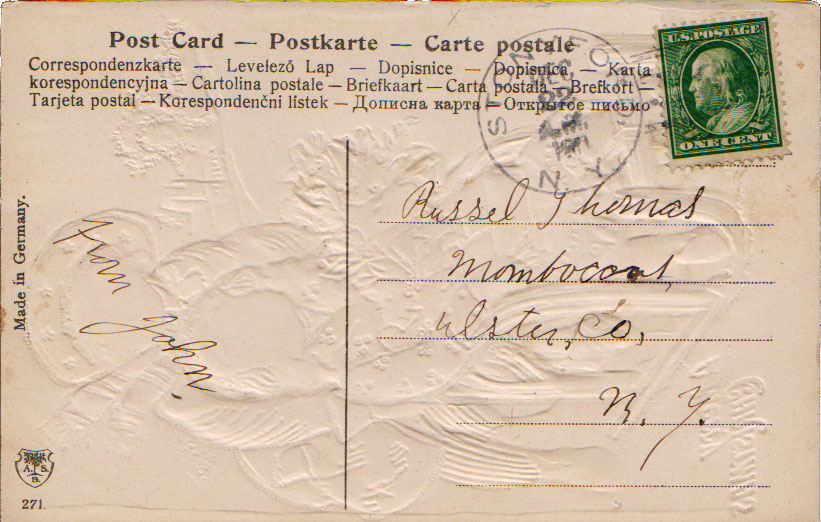 Post Card — Postkarte — Carte postale
Correspondenzkarte — Levelező Lap — Dopisnice — Dopisnica — Karta
korespondencyjna — Cartolina postale — Briefkaart — Carta postala — Brefkort —
Tarjeta postal — Korespondenční lístek — Дописна карта — Открытое письмо
U.S. POSTAGE
ONE CENT
DEC
N.Y.
Made in Germany.
From John
Russel Thomas
Mombaccus,
Ulster, Co,
N. Y.
A. S.
B.
271.